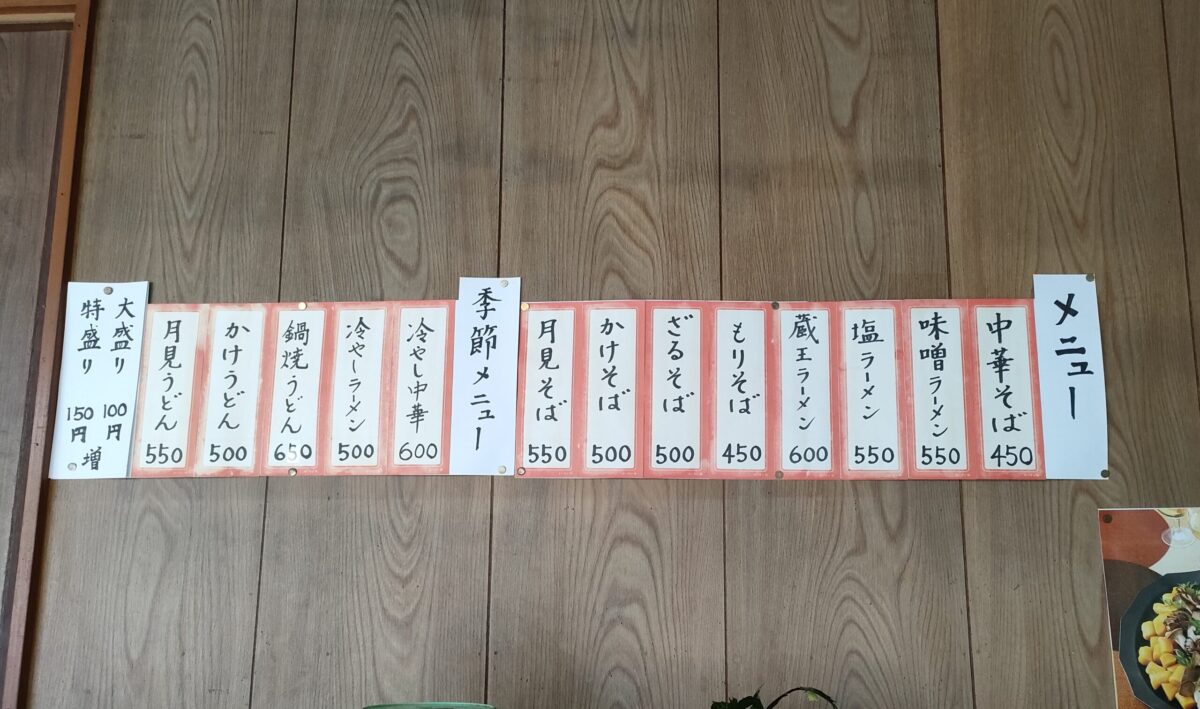 メニュー
中華そば 450
味噌ラーメン 550
塩ラーメン 550
蔵王ラーメン 600
もりそば 450
ざるそば 500
かけそば 500
月見そば 550
季節メニュー
冷やし中華 600
冷やしラーメン 500
鍋焼うどん 650
かけうどん 500
月見うどん 550
大盛り 100円
特盛り 150円増